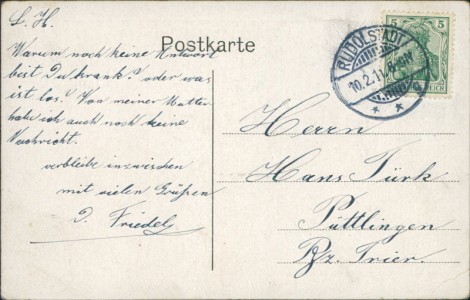 L. H.
Postkarte
Warum noch keine Antwort
bist Du krank? oder was
ist los? Von meiner Mutter
habe ich auch noch keine
Nachricht.
verbleibe inzwischen
mit vielen Grüßen
D. Friedel
RUDOLSTADT
10.2.11.
5 5
REICH
Herrn
Hans Türk
Püttlingen
Bz. Trier.